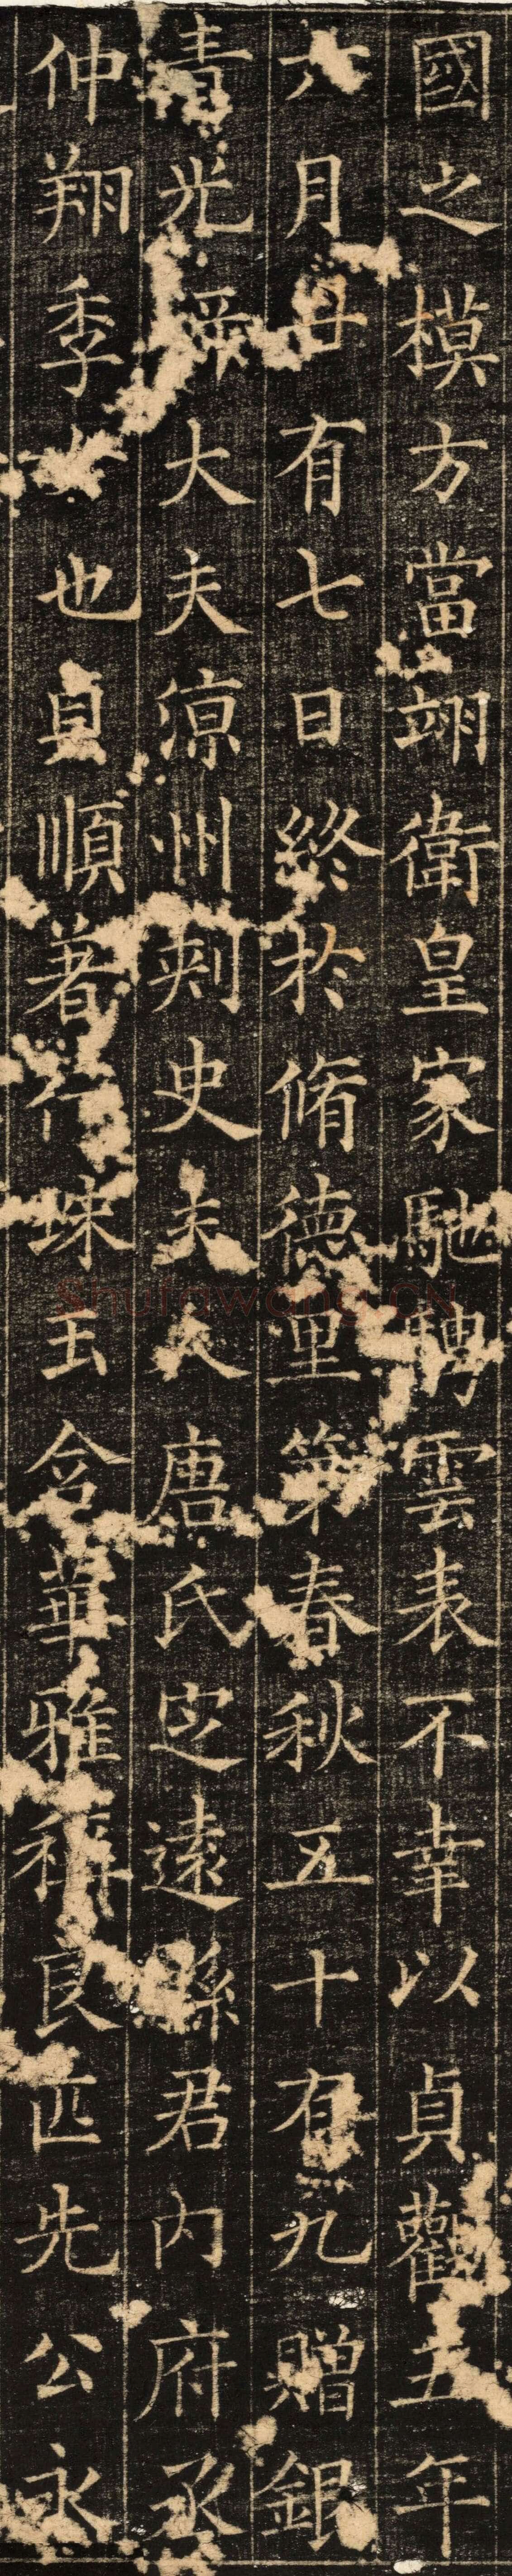 國之模方當翊衛皇家馳騁雲表不幸以貞觀五年
六月廿有七日終於脩德里第春秋五十有九贈銀
青光祿大夫涼州刺史夫人唐氏定遠縣君內府丞
仲翔季女也貞順著行珠玉含華雅稱良匹先公永
Shufawang.CN